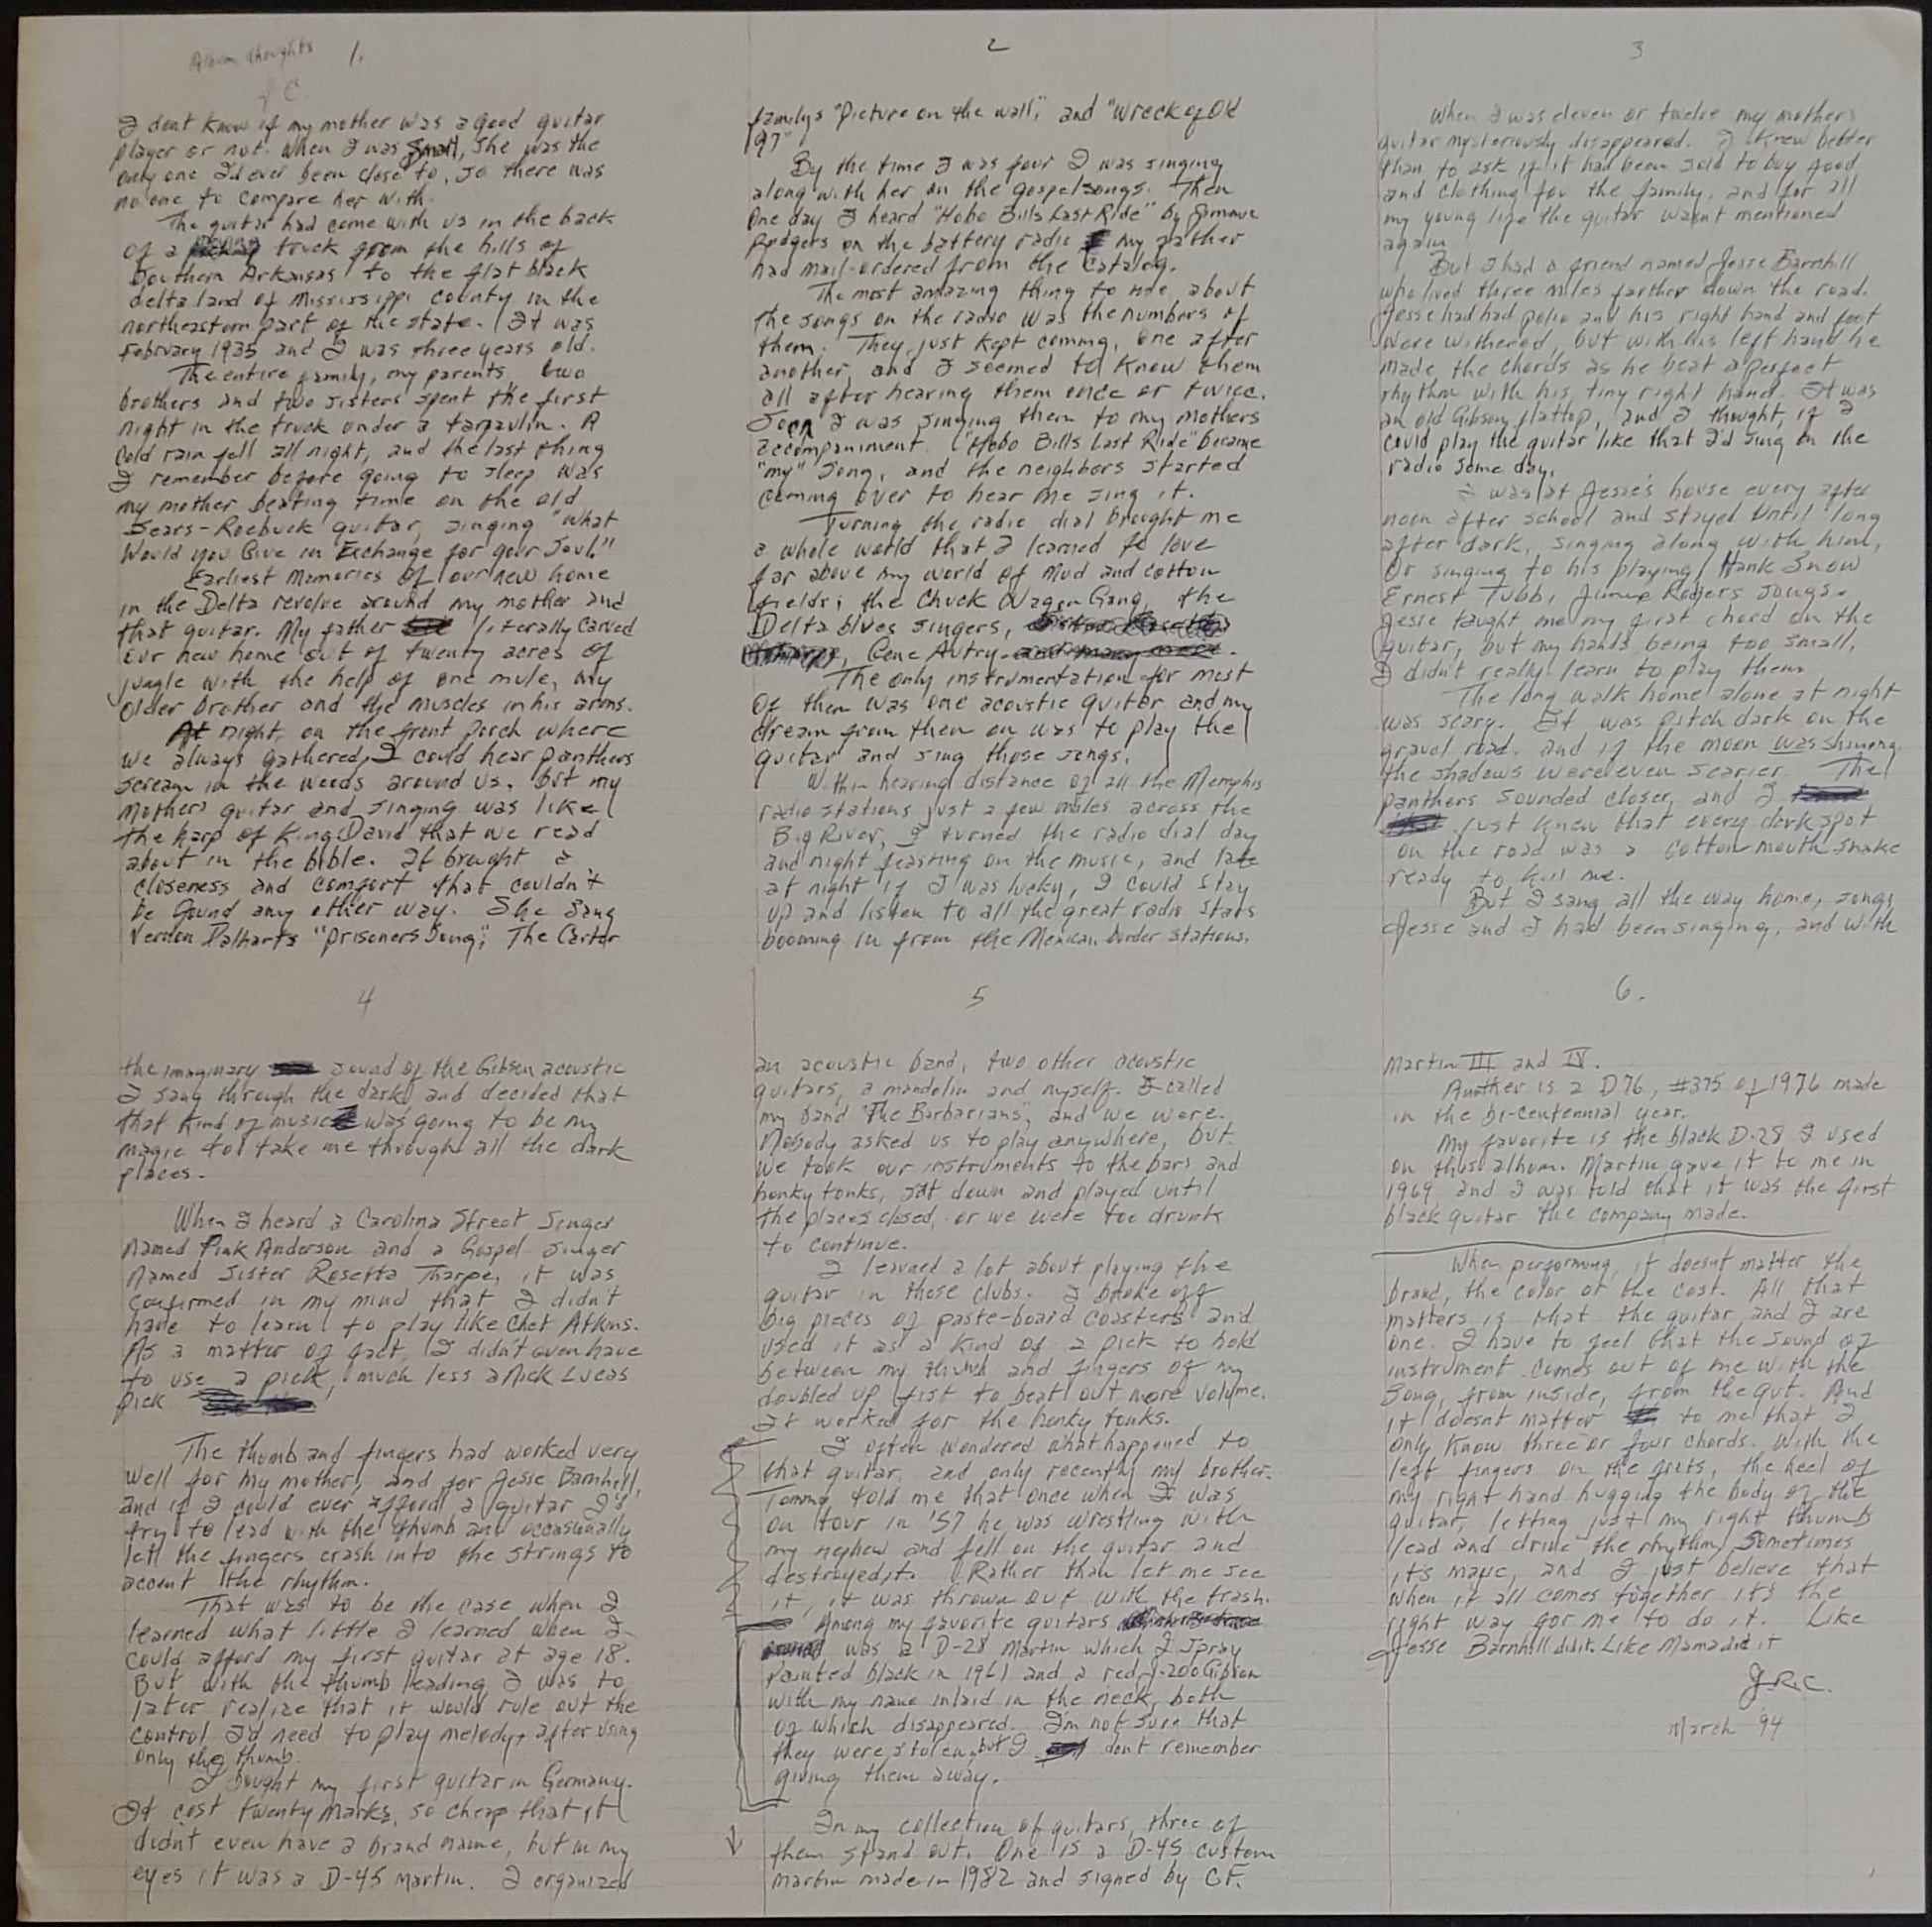 Album thoughts
1.
I dont know if my mother was a good guitar
player or not. When I was small, she was the
only one I'd ever been close to, so there was
no one to compare her with.
The guitar had come with us in the back
of a truck from the hills of
Southern Arkansas to the flat black
delta land of Mississippi county in the
northeastern part of the state. It was
February 1935 and I was three years old.
The entire family, my parents two
brothers and two sisters spent the first
night in the truck under a tarpaulin. A
cold rain fell all night, and the last thing
I remember before going to sleep was
my mother beating time on the old
Sears-Roebuck guitar, singing "What
Would you Give in Exchange for your Soul."
Earliest memories of our new home
in the Delta revolve around my mother and
that guitar. My father literally carved
our new home out of twenty acres of
jungle with the help of one mule, my
older brother and the muscles in his arms.
At night, on the front porch where
we always gathered, I could hear panthers
scream in the woods around us, but my
mothers guitar and singing was like
the harp of King David that we read
about in the bible. It brought a
closeness and comfort that couldn't
be found any other way. She sang
Vernon Dalharts "Prisoners Song", The Carter
2
familys "Picture on the wall," and "Wreck of Old
97"
By the time I was four I was singing
along with her on the gospel songs. Then
One day I heard "Hobo Bills Last Ride" by Jimmie
Rodgers on the battery radio my father
had mail-ordered from the Catalog.
The most amazing thing to me about
the songs on the radio was the numbers of
them. They just kept coming, one after
another, and I seemed to know them
all after hearing them once or twice.
Soon I was singing them to my mothers
accompaniment. "Hobo Bills Last Ride" became
"my" song, and the neighbors started
coming over to hear me sing it.
Turning the radio dial brought me
a whole world that I learned to love
far above my world of mud and cotton
fields; the Chuck Wagon Gang, the
Delta blues singers,
Gene Autry and many more.
The only instrumentation for most
of them was one acoustic guitar and my
dream from then on was to play the
guitar and sing those songs.
Within hearing distance of all the Memphis
radio stations just a few miles across the
Big River, I turned the radio dial day
and night feasting on the music, and late
at night if I was lucky, I could stay
up and listen to all the great radio stars
booming in from the Mexican border stations.
3
When I was eleven or twelve my mothers
guitar mysteriously disappeared. I knew better
than to ask if it had been sold to buy food
and clothing for the family, and for all
my young life the guitar wasnt mentioned
again
But I had a friend named Jesse Barnhill
who lived three miles farther down the road.
Jesse had had polio and his right hand and foot
were withered, but with his left hand he
made the chords as he beat a perfect
rhythm with his tiny right hand. It was
an old Gibson flattop, and I thought, if I
could play the guitar like that I'd sing on the
radio some day.
I was at Jesse's house every after
noon after school and stayed until long
after dark, singing along with him,
Or singing to his playing Hank Snow
Ernest Tubb, Jimmie Rodgers songs.
Jesse taught me my first chord on the
guitar, but my hands being too small,
I didn't really learn to play them
The long walk home alone at night
was scary. It was pitch dark on the
gravel road, and if the moon was shining,
the shadows were even scarier. The
panthers sounded closer, and I
just knew that every dark spot
on the road was a cotton mouth snake
ready to kill me.
But I sang all the way home, songs
Jesse and I had been singing, and with
4
the imaginary sound of the Gibson acoustic
I sang through the dark and decided that
that kind of music was going to be my
magic to take me through all the dark
places.
When I heard a Carolina Street Singer
named Pink Anderson and a Gospel singer
named Sister Rosetta Tharpe, it was
confirmed in my mind that I didn't
have to learn to play like Chet Atkins.
As a matter of fact, I didn't even have
to use a pick, much less a Nick Lucas
pick
The thumb and fingers had worked very
well for my mother, and for Jesse Barnhill,
and if I could ever afford a guitar I'd
try to lead with the thumb and occasionally
let the fingers crash into the strings to
accent the rhythm.
That was to be the case when I
learned what little I learned when I
could afford my first guitar at age 18.
But with the thumb leading, I was to
later realize that it would rule out the
control I'd need to play melody, after using
only the thumb.
I bought my first guitar in Germany.
It cost twenty marks, so cheap that it
didn't even have a brand name, but in my
eyes it was a D-45 Martin. I organized
5
an acoustic band, two other acoustic
guitars, a mandolin and myself. I called
my band "The Barbarians", and we were.
Nobody asked us to play anywhere, but
we took our instruments to the bars and
honky tonks, sat down and played until
the places closed, or we were too drunk
to continue.
I learned a lot about playing the
guitar in those clubs. I broke off
big pieces of paste-board coasters and
used it as a kind of a pick to hold
between my thumb and fingers of my
doubled up fist to beat out more volume.
It worked for the honky tonks.
I often wondered what happened to
that guitar, and only recently my brother
Tommy told me that once when I was
on tour in '57 he was wrestling with
my nephew and fell on the guitar and
destroyed it. Rather than let me see
it, it was thrown out with the trash.
Among my favorite guitars
was a D-28 Martin which I spray
painted black in 1961 and a red J-200 Gibson
with my name inlaid in the neck, both
of which disappeared. I'm not sure that
they were stolen, but I dont remember
giving them away.
In my collection of guitars, three of
them stand out. One is a D-45 custom
martin made in 1982 and signed by C.F.
6.
Martin III and IV.
Another is a D76, #375 of 1976 made
in the bi-centennial year.
My favorite is the black D-28 I used
on this album. Martin gave it to me in
1969 and I was told that it was the first
black guitar the company made.
When performing, it doesnt matter the
brand, the color or the cost. All that
matters is that the guitar and I are
one. I have to feel that the sound of
instrument comes out of me with the
song, from inside, from the gut. And
it doesnt matter to me that I
only know three or four chords. With the
left fingers on the frets, the heel of
my right hand hugging the body of the
guitar, letting just my right thumb
lead and drive the rhythm, Sometimes
it's magic, and I just believe that
when it all comes together it's the
right way for me to do it. Like
Jesse Barnhill did it. Like Mama did it
J.R.C.
March '94